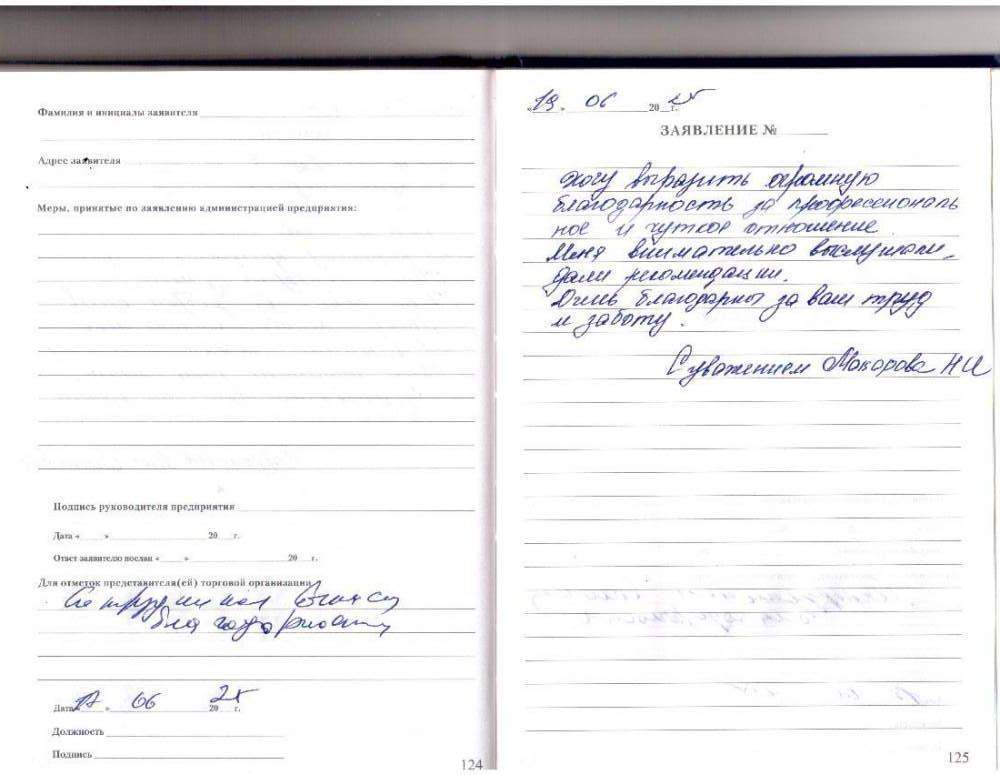 Фамилия и инициалы заявителя
Адрес заявителя
Меры, принятые по заявлению администрацией предприятия:
Подпись руководителя предприятия
Дата « » 20 г.
Ответ заявителю послан « » 20 г.
Для отметок представителя(ей) торговой организации
Сотрудникам
благодарность
Дата 06 20 г.
Должность
Подпись
124
«19» 06 20 25 г.
ЗАЯВЛЕНИЕ №
Хочу выразить огромную
благодарность за профессиональ
ное и чуткое отношение.
Меня внимательно выслушали,
дали рекомендации.
Очень благодарны за ваш труд
и заботу.
С уважением Макарова Н И
125